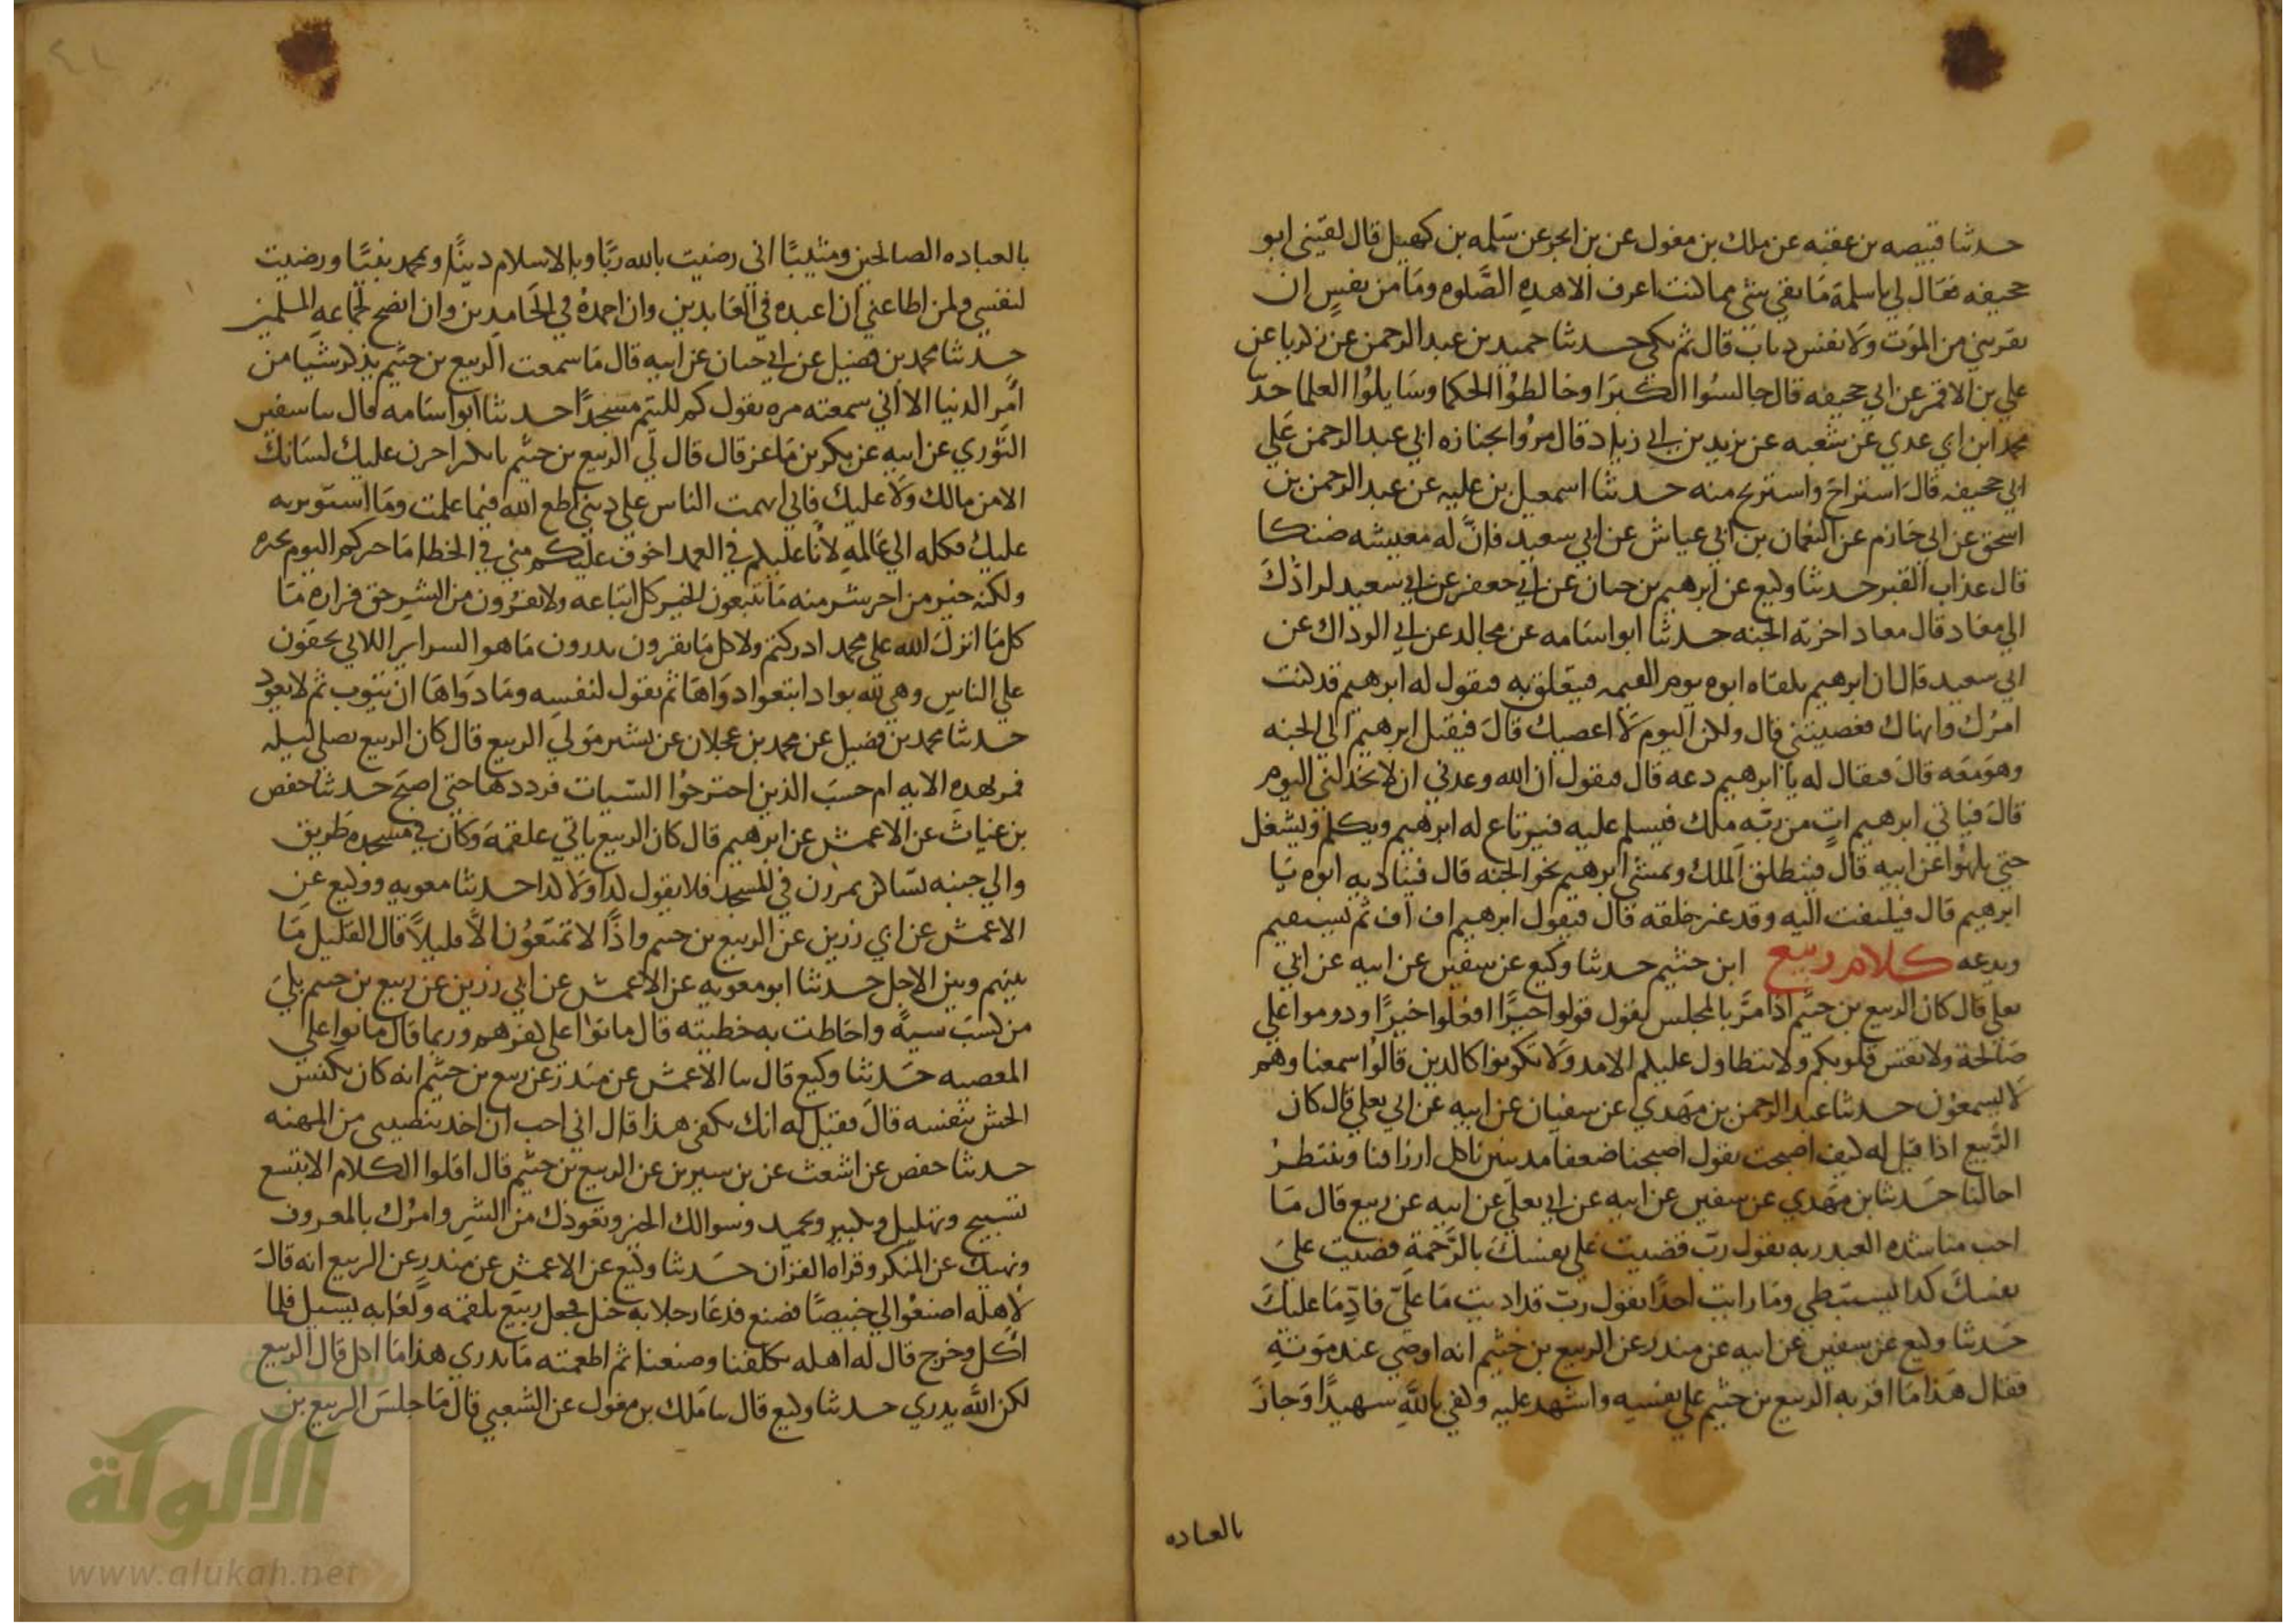 حدثنا قبيصه بن عقبه عن ملك بن مغول عن بن ابجر عن سلمه بن كهيل قال لقيني ابو
جحيفه فقال لي يا سلمة ما بقي شي مما كنت اعرف الا هذه الصلوه وما من نفس ان
تقربني من الموت ولا نفس ذباب قال ثم بكي حدثنا حميد بن عبد الرحمن عن زكريا عن
علي بن الاقمر عن ابي جحيفه قال جالسوا الكبرا وخالطوا الحكما وسايلوا العلما حدثنا
محمد ابن ابي عدي عن شعبه عن يزيد بن ابي زياد قال مروا بجنازه ابي عبد الرحمن علي
ابي جحيفه قال استراح واستريح منه حدثنا اسمعيل بن عليه عن عبد الرحمن بن
اسحق عن ابي حازم عن النعمان بن ابي عياش عن ابي سعيد فان له معيشه ضنكا
قال عذاب القبر حدثنا وكيع عن ابرهيم بن حبان عن ابي جعفر عن ابي سعيد لرادك
الي معاد قال معاد اخرته الجنه حدثنا ابو اسامه عن مجالد عن ابي الوداك عن
ابي سعيد قال ان ابرهيم يلقاه ابوه يوم القيمه فيتعلق به فيقول له ابرهيم قد كنت
امرك وانهاك فعصيتني قال ولكن اليوم لا اعصيك قال فيقبل ابرهيم الي الجنه
وهو معه قال فيقال له يا ابرهيم دعه قال فيقول ان الله وعدني ان لا يخذلني اليوم
قال فياتي ابرهيم ات من ربه ملك فيسلم عليه فيرتاع له ابرهيم ويكلمه ويشغل
حتي يلهوا عن ابيه قال فينطلق الملك ويمشي ابرهيم نحو الجنه قال فيناديه ابوه يا
ابرهيم قال فيلتفت اليه وقد غير خلقه قال فيقول ابرهيم اف اف ثم يستقيم
ويدعه كلام ربيع ابن خثيم حدثنا وكيع عن سفين عن ابيه عن ابي
يعلي قال كان الربيع بن خثيم اذا مر بالمجلس يقول قولوا خيرا افعلوا خيرا ودوموا علي
صالحة ولا تقس قلوبكم ولا يتطاول عليكم الامد ولا تكونوا كالذين قالوا سمعنا وهم
لا يسمعون حدثنا عبد الرحمن بن مهدي عن سفيان عن ابيه عن ابي يعلي قال كان
الربيع اذا قيل له كيف اصبحت يقول اصبحنا ضعفا مذنبين ناكل ارزاقنا وننتظر
اجالنا حدثنا بن مهدي عن سفين عن ابيه عن ابي يعلي عن ابيه عن ربيع قال ما
احب مناشده العبد ربه يقول رب قضيت علي نفسك بالرحمة قضيت علي
نفسك كذا يستبطي وما رايت احدا يقول رب قد اديت ما علي فاد ما عليك
حدثنا وكيع عن سفين عن ابيه عن منذر عن الربيع بن خثيم انه اوصي عند موته
فقال هذا ما اقر به الربيع بن خثيم علي نفسه واشهد عليه وكفي بالله شهيدا وجاز
بالعباده
بالعباده الصالحين ومثيبا اني رضيت بالله ربا وبالاسلام دينا وبمحمد نبيا ورضيت
لنفسي ولمن اطاعني ان اعبده في العابدين وان احمده في الحامدين وان انصح لجماعه المسلمين
حدثنا محمد بن فضيل عن ابي حيان عن ابيه قال ما سمعت الربيع بن خثيم يذكر شيا من
امر الدنيا الا اني سمعته مره يقول كم للتيم مسجدا حدثنا ابو اسامه قال سا سفين
الثوري عن ابيه عن بكر بن ماعز قال قال لي الربيع بن خثيم يا بكر اخزن عليك لسانك
الا من مالك ولا عليك فاني اتهمت الناس علي ديني اطع الله فيما علمت وما استوثر به
عليك فكله الي عالمه لانا عليكم في العمد اخوف عليكم مني في الخطا ما خيركم اليوم بخيره
ولكنه خير من اخر شر منه ما تتبعون الخير كل اتباعه ولا تفرون من الشر حق فراره ما
كل ما انزل الله علي محمد ادركتم ولا كل ما تقرون تدرون ما هو السراير اللاتي يخفون
علي الناس وهي لله بواد ابتغوا دواها ثم يقول لنفسه وما دواها ان يتوب ثم لا يعود
حدثنا محمد بن فضيل عن محمد بن عجلان عن بشر مولي الربيع قال كان الربيع يصلي ليله
فمر بهذه الايه ام حسب الذين اجترحوا السيات فرددها حتي اصبح حدثنا حفص
بن غياث عن الاعمش عن ابرهيم قال كان الربيع ياتي علقمة وكان في مسجده طريق
والي جنبه نسا كن يمررن في المسجد فلا يقول كذا ولا كذا حدثنا معويه ووكيع عن
الاعمش عن ابي رزين عن الربيع بن خثيم واذا لا تمتعون الا قليلا قال القليل ما
بينهم وبين الاجل حدثنا ابو معويه عن الاعمش عن ابي رزين عن ربيع بن خثيم بلي
من كسب سيية واحاطت به خطيته قال ماتوا علي كفرهم وربما قال ماتوا علي
المعصيه حدثنا وكيع قال سا الاعمش عن منذر عن ربيع بن خثيم انه كان يكنس
الحش بنفسه قال فقيل له انك تكفي هذا قال اني احب ان اخذ بنصيبي من المهنه
حدثنا حفص عن اشعث عن بن سيرين عن الربيع بن خثيم قال اقلوا الكلام الا بتسع
تسبيح وتهليل وتكبير وتحميد وسوالك الخير وتعوذك من الشر وامرك بالمعروف
ونهيك عن المنكر وقراه القران حدثنا وكيع عن الاعمش عن منذر عن الربيع انه قال
لاهله اصنعوا لي خبيصا فصنع فدعا رجلا به خبل فجعل ربيع يلقمه ولعابه يسيل فلما
اكل وخرج قال له اهله تكلفنا وصنعنا ثم اطعمته ما يدري هذا ما اكل قال الربيع
لكن الله يدري حدثنا وكيع قال سا ملك بن مغول عن الشعبي قال ما جلس الربيع بن
الألوكة
www.alukah.net